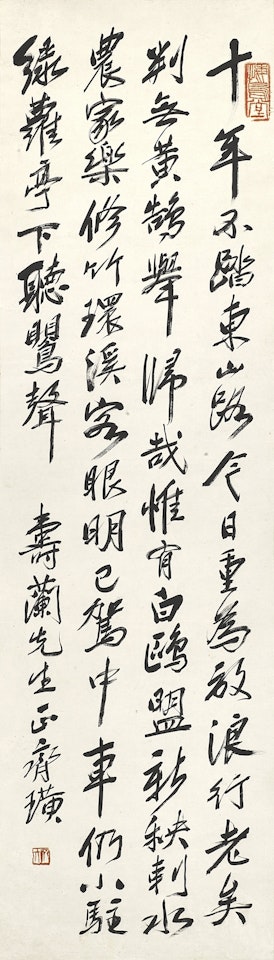 十年不踏東山路今日重為放浪行老矣
判無黃鵠舉歸哉惟有白鷗盟新秧刺水
農家樂修竹環溪客眼明已駕巾車仍小駐
綠蘿亭下聽鸎聲
壽蘭先生正齊璜